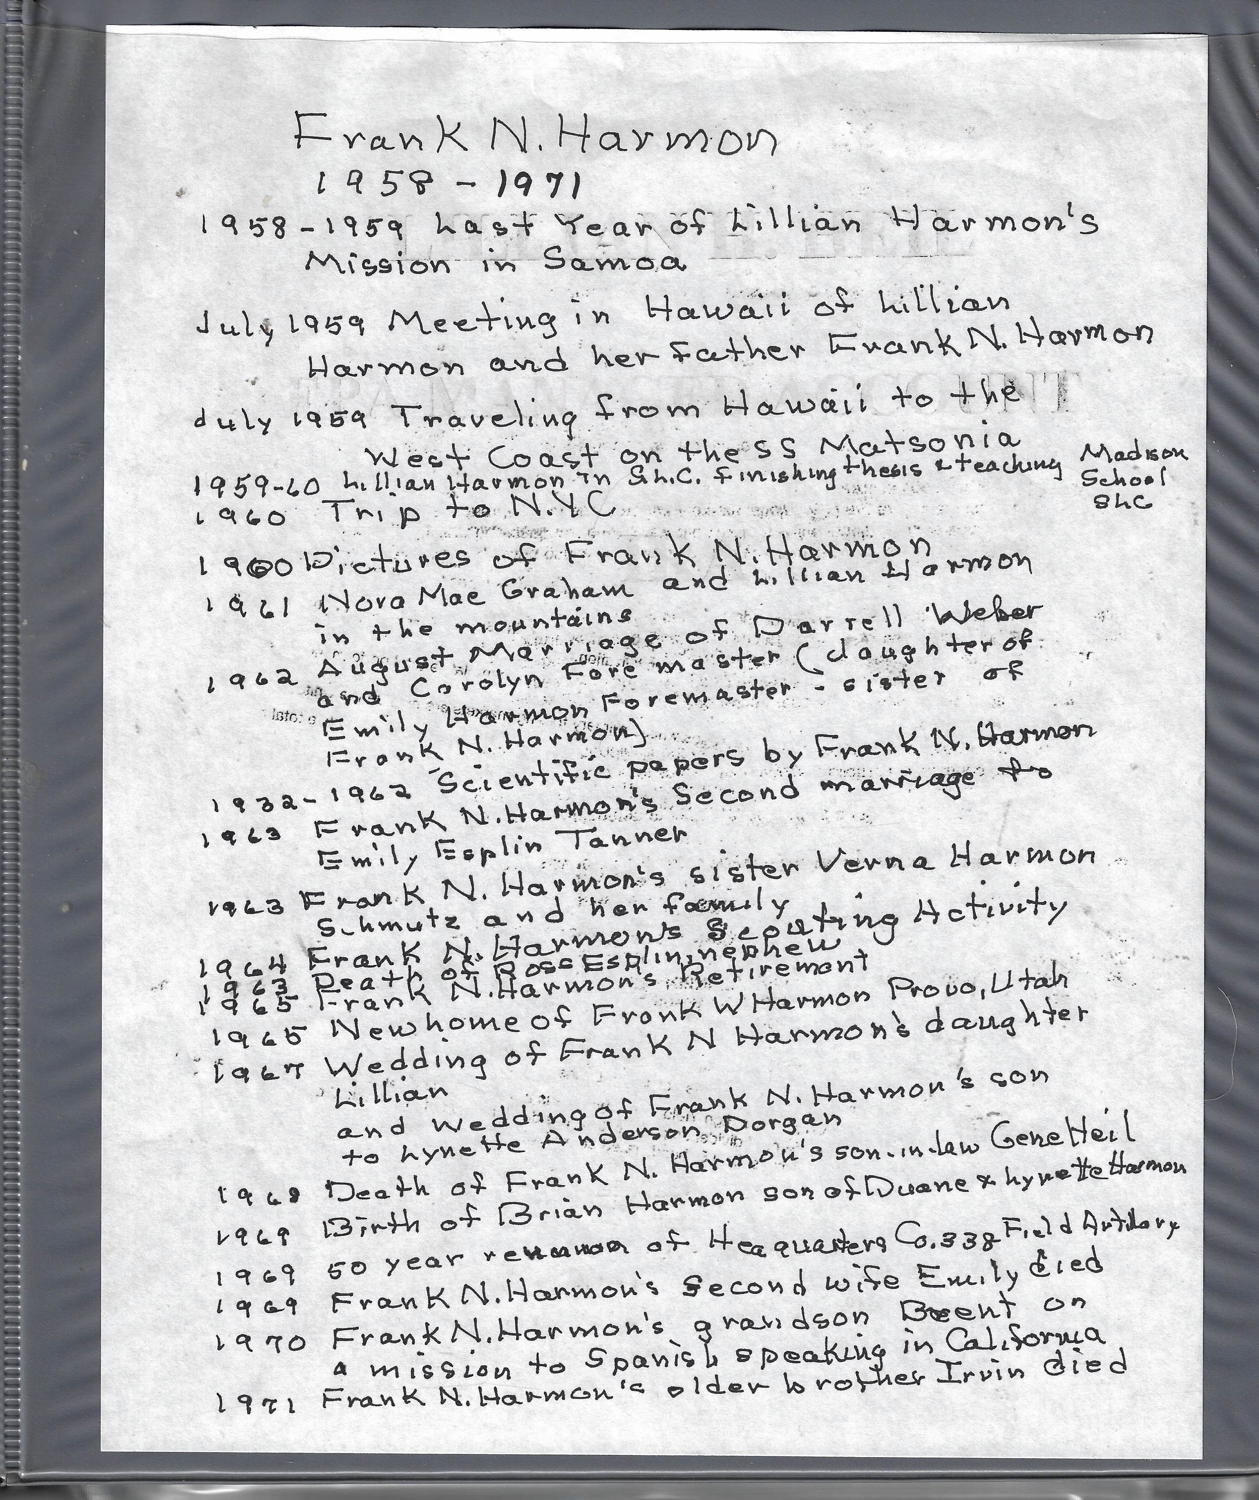 Frank N. Harmon
1958 - 1971
1958-1959 Last Year of Lillian Harmon's
Mission in Samoa
July 1959 Meeting in Hawaii of Lillian
Harmon and her father Frank N. Harmon
July 1959 Traveling from Hawaii to the
West Coast on the SS Matsonia
1959-60 Lillian Harmon in S.L.C. finishing thesis & teaching Madison
School
SLC
1960 Trip to N.Y.C
1960 Pictures of Frank N. Harmon
1961 Nora Mae Graham and Lillian Harmon
in the mountains
1962 August Marriage of Darrell Weber
and Carolyn Foremaster (daughter of
Emily Harmon Foremaster - sister of
Frank N. Harmon)
1932-1962 Scientific papers by Frank N. Harmon
1963 Frank N. Harmon's Second marriage to
Emily Esplin Tanner
1963 Frank N. Harmon's sister Verna Harmon
Schmutz and her family
1964 Frank N. Harmon's Scouting Activity
1963 Death of Ross Esplin, nephew
1965 Frank N. Harmon's Retirement
1965 New home of Frank W Harmon Provo, Utah
1967 Wedding of Frank N Harmon's daughter
Lillian
and Wedding of Frank N. Harmon's son
to Lynette Anderson Dorgan
1968 Death of Frank N. Harmon's son-in-law Gene Heil
1969 Birth of Brian Harmon son of Duane & Lynette Harmon
1969 50 year reunion of Heaquarters Co. 338 Field Artillary
1969 Frank N. Harmon's Second wife Emily died
1970 Frank N. Harmon's grandson Brent on
a mission to Spanish speaking in California
1971 Frank N. Harmon's older brother Irvin died